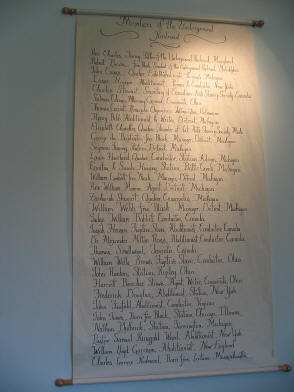 Members of the Underground
Railroad
Rev. Charles Torrey, Father of the Underground Railroad, Maryland
Robert Purvis, of the Underground Railroad, Philadelphia
John Cross, Quaker Established through Michigan
Abolitionist Conductor, New York
Charles Stewart, Secretary of Canadian Anti Slavery Society, Canada
Salmon Chase, Attorney General, Cincinnati, Ohio
Thomas Garrett, Quaker Wilmington, Delaware
Henry Bibb, Abolitionist & Writer, Detroit, Michigan
Elizabeth Chandler, Quaker, Founder of Anti Slavery Society, Mich.
George de Baptiste, Free Black, Manager, Detroit, Michigan
Seymour Finney, Detroit, Michigan
Laura Haviland, Quaker, Conductor, Station, Adrian, Michigan
& Sarah Station, Battle Creek, Michigan
William Lambert, Free Black, Manager, Detroit, Michigan
Rev. William Monroe, Agent, Detroit, Michigan
Quaker, Cassopolis, Michigan
William Webb, Free Black, Manager, Detroit, Michigan
William Conductor, Canada
Josiah Henson, Fugitive Slave, Abolitionist, Conductor, Canada
Dr. Alexander Milton Ross, Abolitionist, Conductor, Canada
Thomas Smallwood, Canada
William Wells Brown, Fugitive Slave, Conductor, Ohio
John Rankin, Station, Ripley, Ohio
Harriet Beecher Stowe, Agent, Writer, Cincinnati, Ohio
Frederick Douglass, Abolitionist, Station, New York
John Fairfield, Abolitionist, Conductor, Virginia
John Jones, Born Free Black, Station, Chicago, Illinois
Nathan Station, Farmington, Michigan
Pastor Samuel Ringgold Ward, Abolitionist, New York
William Lloyd Garrison, Abolitionist, New England
Charles Lenox Remond, Born free, Massachusetts